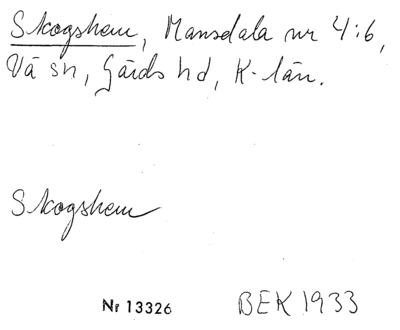 Skogshem, Mansdala nr 4:6,
Vä sn, Gärds hd, K-län.
Skogshem
Nr 13326 BEK 1933